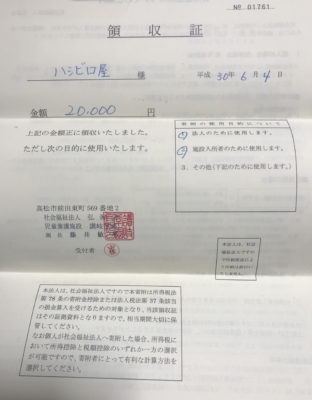 № 01761
領収証
ハシビロ屋 様
平成 30年 6月 4日
金額 20,000 円
上記の金額正に領収いたしました。
ただし次の目的に使用いたします。
寄附の使用目的について
① 法人のために使用します。
② 施設入所者のために使用します。
3．その他（下記のために使用します。
高松市前田東町 569 番地 2
社会福祉法人 弘
児童養護施設 讃岐
園長 藤井
受付者
本法人は、社会
本法人は、社会福祉法人ですので本寄附は所得税法
第 78 条の寄附金控除または法人税法第 37 条該当
の損金算入を受けるための対象となり、当該領収証
はその証拠資料となりますので、相当期間大切に保
管してください。
なお個人が社会福祉法人へ寄附した場合、所得税に
おいて所得控除と税額控除のいずれか一方の選択
が可能ですので、寄附者にとって有利な計算方法を
選択してください。